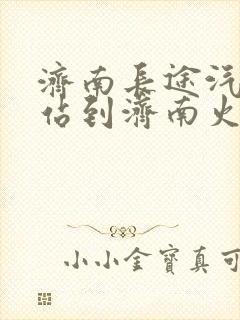 濟南長途汽
佔到濟南火
小小金寶真可